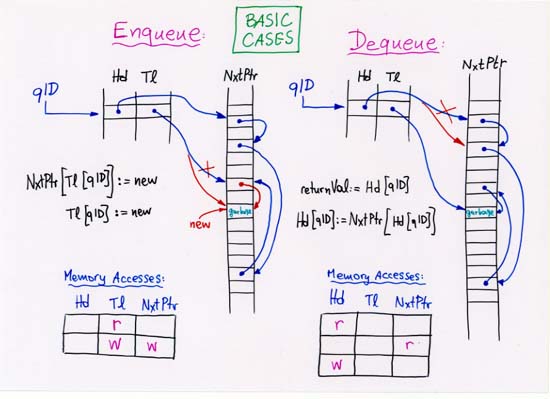 BASIC
CASES
Enqueue:
Hd Tl
NxtPtr
qID
NxtPtr[Tl[qID]] := new
Tl[qID] := new
garbage
new
Memory Accesses:
Hd Tl NxtPtr
r
W W
Dequeue:
Hd Tl
NxtPtr
qID
returnVal := Hd[qID]
Hd[qID] := NxtPtr[Hd[qID]]
garbage
Memory Accesses:
Hd Tl NxtPtr
r
r
W